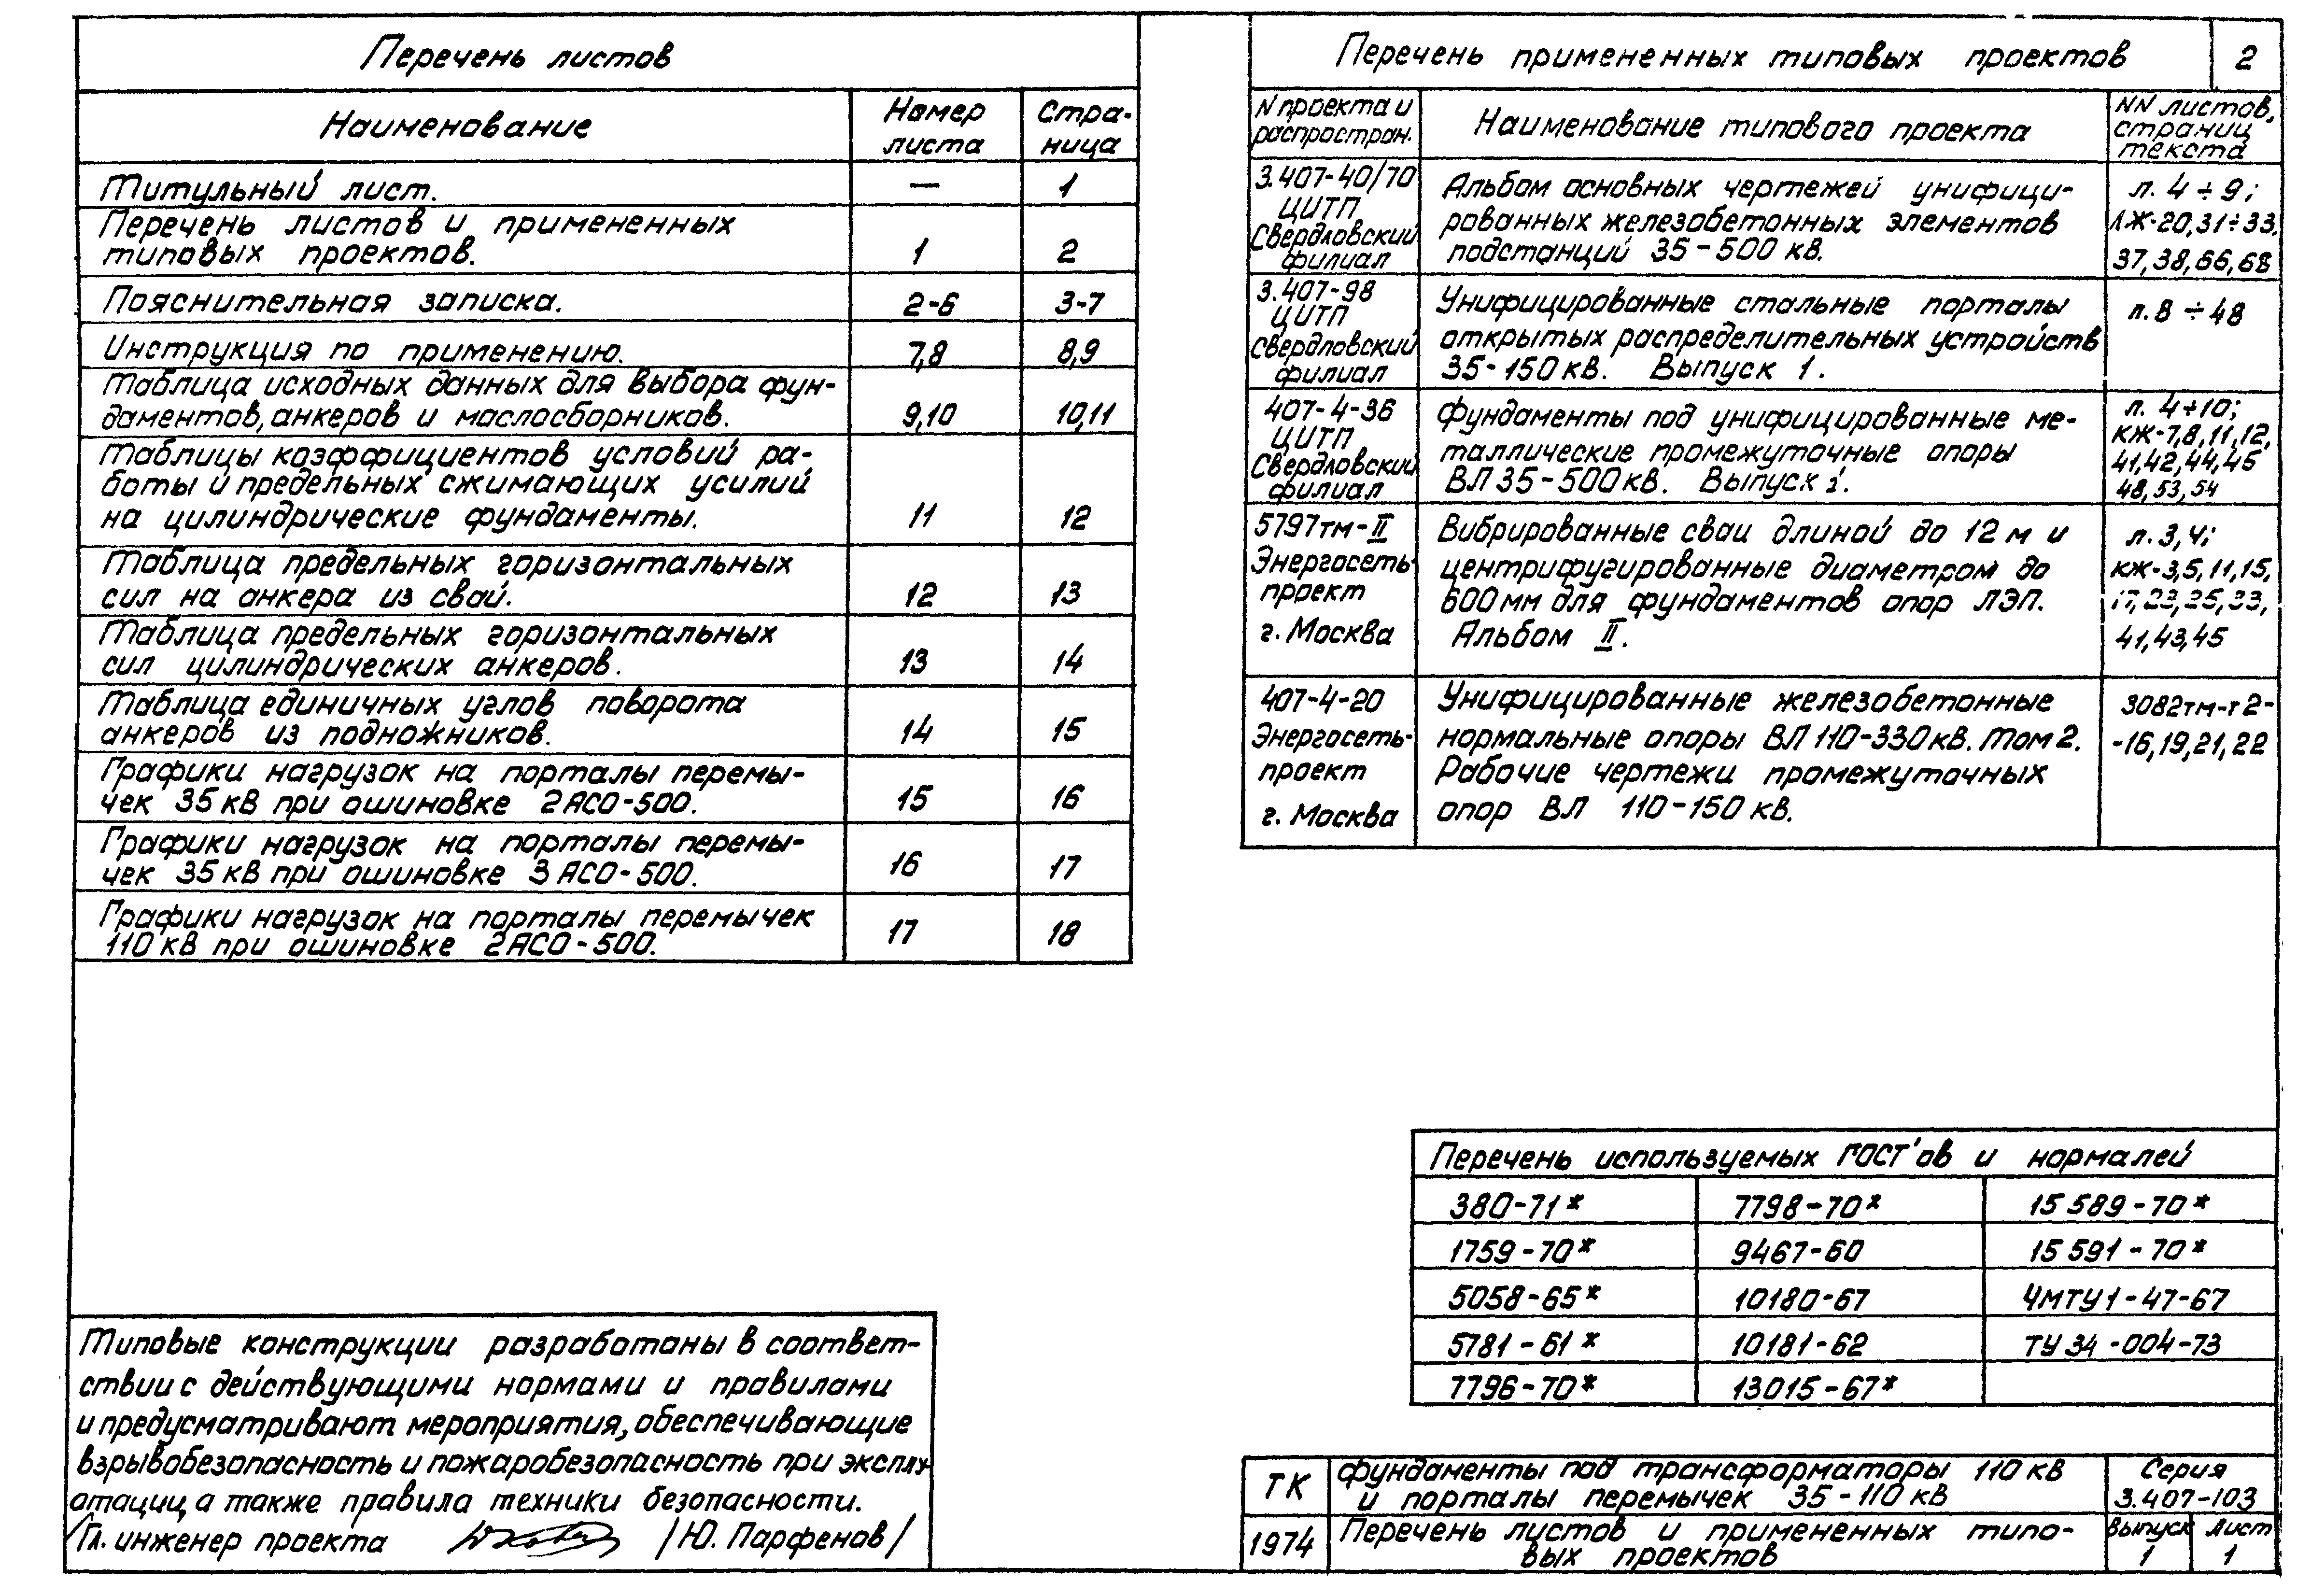 Перечень листов
Наименование
Номер листа
Стра-
ница
Титульный лист. — 1
Перечень листов и примененных
типовых проектов. 1 2
Пояснительная записка. 2-6 3-7
Инструкция по применению. 7,8 8,9
Таблица исходных данных для выбора фун-
даментов, анкеров и маслосборников. 9,10 10,11
Таблицы коэффициентов условий ра-
боты и предельных сжимающих усилий
на цилиндрические фундаменты. 11 12
Таблица предельных горизонтальных
сил на анкера из свай. 12 13
Таблица предельных горизонтальных
сил цилиндрических анкеров. 13 14
Таблица единичных углов поворота
анкеров из подножников. 14 15
Графики нагрузок на порталы перемы-
чек 35 кВ при ошиновке 2 АСО-500. 15 16
Графики нагрузок на порталы перемы-
чек 35 кВ при ошиновке 3 АСО-500. 16 17
Графики нагрузок на порталы перемычек
110 кВ при ошиновке 2 АСО-500. 17 18
Типовые конструкции разработаны в соответ-
ствии с действующими нормами и правилами
и предусматривают мероприятия, обеспечивающие
взрывобезопасность и пожаробезопасность при эксплу
атации, а также правила техники безопасности.
/Гл. инженер проекта /Ю. Парфенов/
Перечень примененных типовых проектов 2
N проекта и
распростран.
Наименование типового проекта
NN листов,
страниц
текста
3.407-40/70
ЦИТП
Свердловский
филиал
Альбом основных чертежей унифици-
рованных железобетонных элементов
подстанций 35-500 кв.
л. 4÷9;
ЛЖ-20,31÷33,
37,38,66,68
3.407-98
ЦИТП
Свердловский
филиал
Унифицированные стальные порталы
открытых распределительных устройств
35-150 кв. Выпуск 1.
л. 8÷48
407-4-36
ЦИТП
Свердловский
филиал
Фундаменты под унифицированные ме-
таллические промежуточные опоры
ВЛ 35-500 кв. Выпуск 1.
л. 4÷10;
КЖ-7,8,11,12,
41,42,44,45
48,53,54
5797тм-II
Энергосеть-
проект
г. Москва
Вибрированные сваи длиной до 12 м и
центрифугированные диаметром до
600 мм для фундаментов опор ЛЭП.
Альбом II.
л. 3,4;
КЖ-3,5,11,15,
41,43,45
407-4-20
Энергосеть-
проект
г. Москва
Унифицированные железобетонные
нормальные опоры ВЛ 110-330 кв. Том 2.
Рабочие чертежи промежуточных
опор ВЛ 110-150 кв.
3082тм-т2-
-16,19,21,22
Перечень используемых ГОСТ'ов и нормалей
380-71* 7798-70* 15 589-70*
1759-70* 9467-60 15 591-70*
5058-65* 10180-67 ЧМТУ 1-47-67
5781-61* 10181-62 ТУ 34-004-73
7796-70* 13015-67*
ТК
Фундаменты под трансформаторы 110 кв
и порталы перемычек 35-110 кв
Серия
3.407-103
1974
Перечень листов и примененных типо-
вых проектов
Выпуск
1
Лист
1